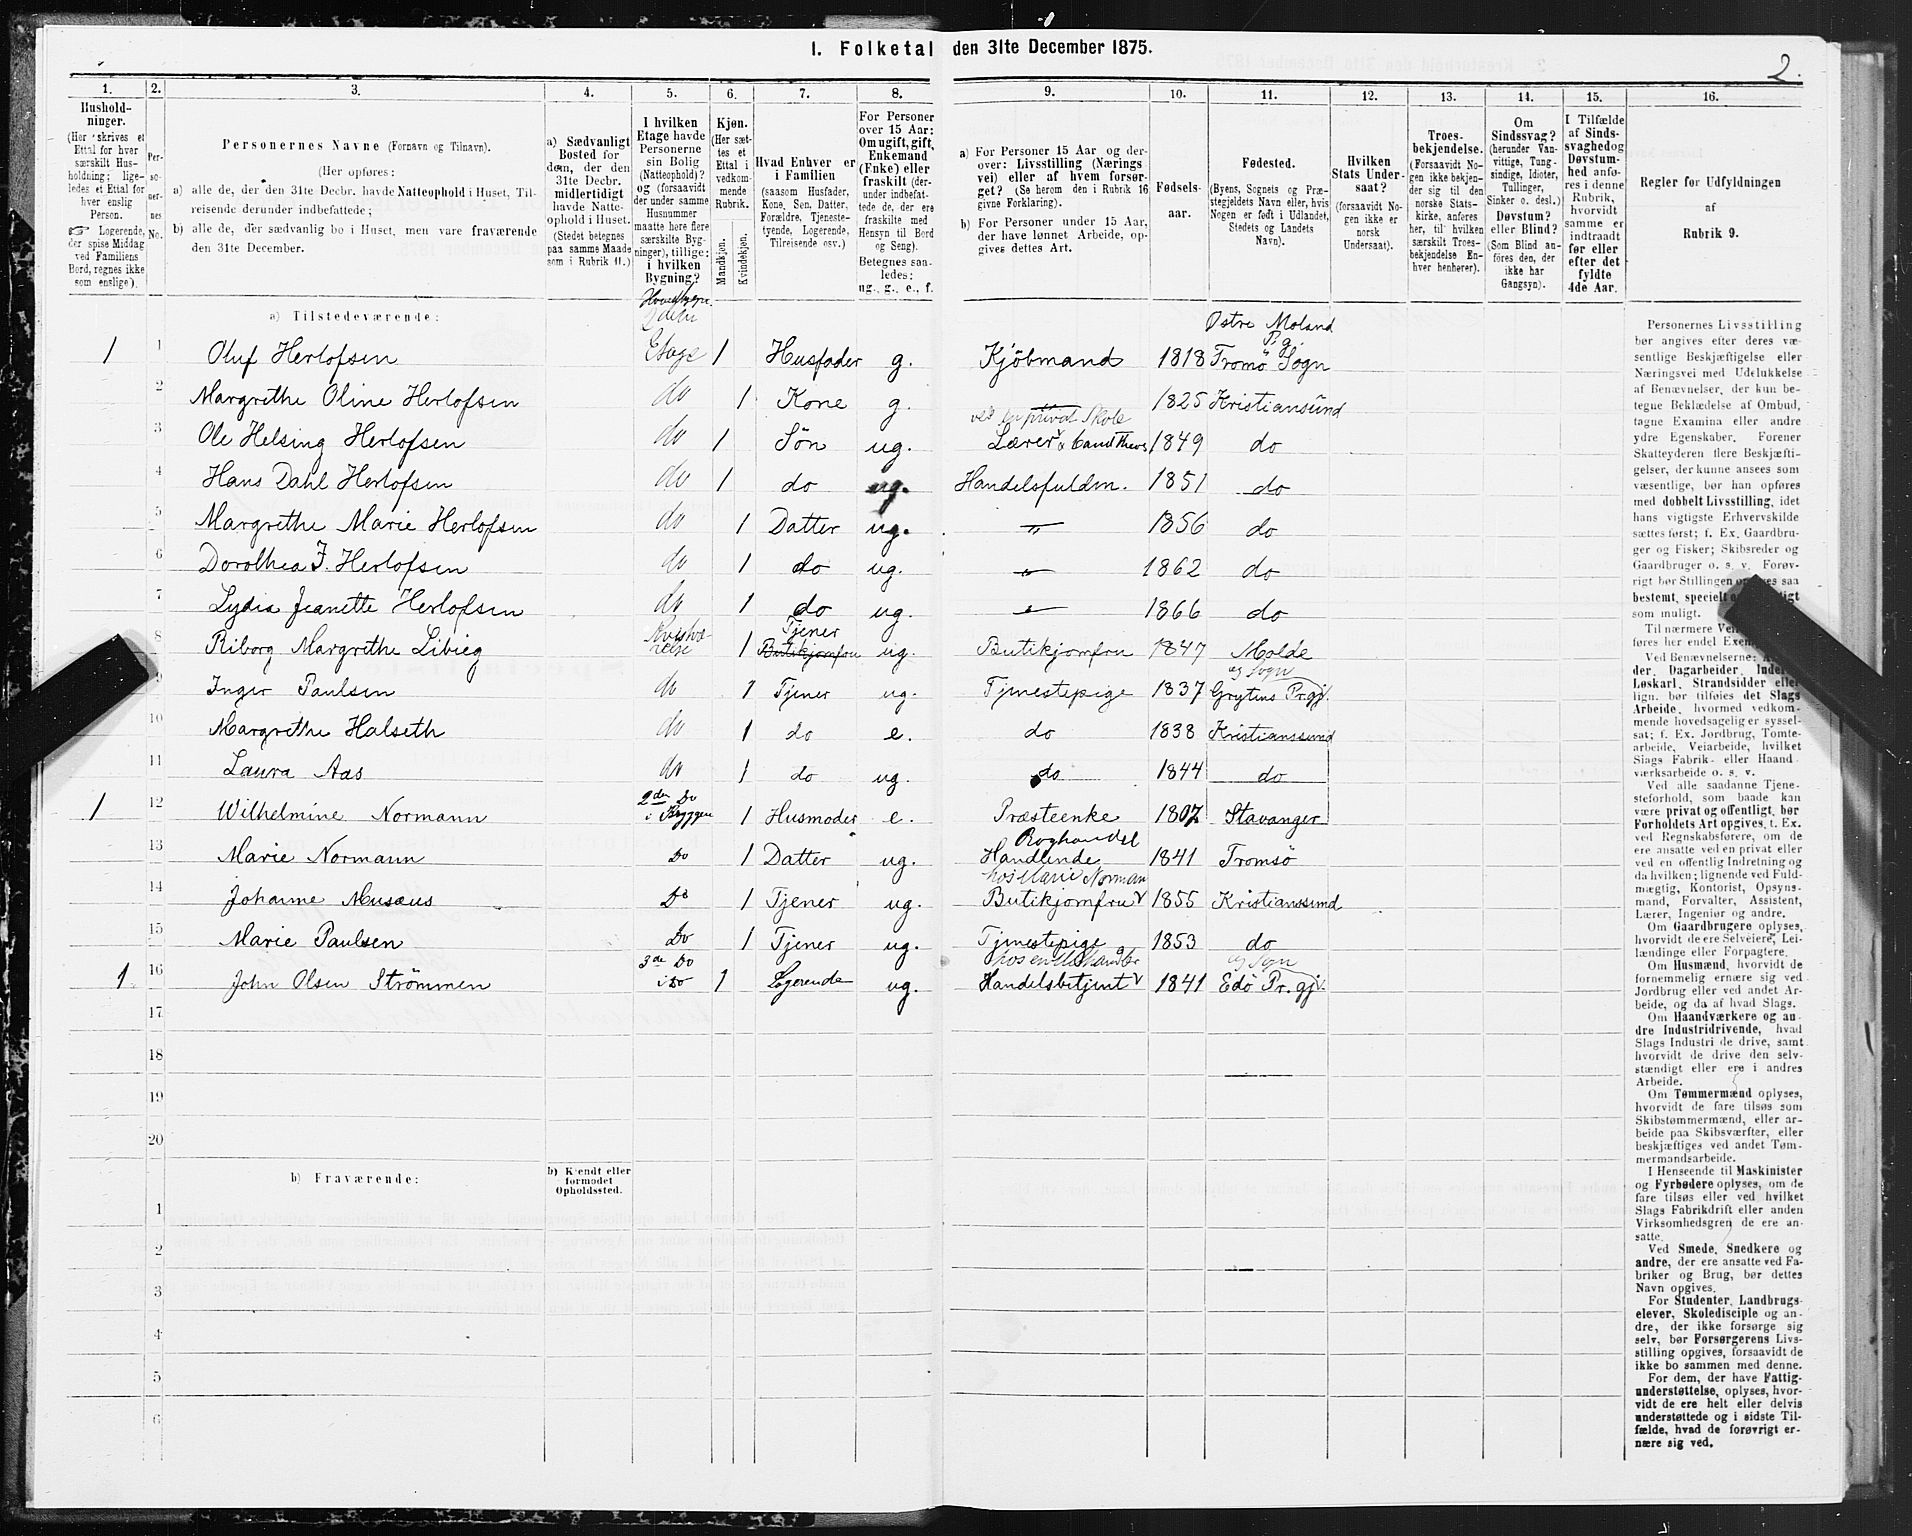 1. Folketal den 31te December 1875.
2.
1. 2. 3. 4. 5. 6. 7. 8. 9. 10. 11. 12. 13. 14. 15. 16.
Hushold-
ninger.
(Her skrives et
Ettal for hver
særskilt Hus-
holdning; lige-
ledes et Ettal for
hver enslig
Person.
☞ Logerende,
der spise Middag
ved Familiens
Bord, regnes ikke
som enslige).
Per-
so-
ner-
nes
No.
Personernes Navne (Fornavn og Tilnavn).
(Her opføres:
a) alle de, der den 31te Decbr. havde Natteophold i Huset, Til-
reisende derunder indbefattede;
b) alle de, der sædvanlig bo i Huset, men vare fraværende
den 31te December.
a) Sædvanligt
Bosted for
dem, der den
31te Decbr.
midlertidigt
havde Natte-
ophold i Huset.
(Stedet betegnes
paa samme Maade
som i Rubrik 11.)
I hvilken
Etage havde
Personerne
sin Bolig
(Natteophold)?
og (forsaavidt
der under samme
Husnummer
maatte høre flere
særskilte Byg-
ninger), tillige:
i hvilken
Bygning?
Kjøn.
(Her sæt-
tes et
Ettal i
vedkom-
mende
Rubrik.
Mandkjøn.
Kvindekjøn.
Hvad Enhver er
i Familien
(saasom Husfader,
Kone, Søn, Datter,
Forældre, Tjeneste-
tyende, Logerende,
Tilreisende osv.)
For Personer
over 15 Aar:
Om ugift, gift,
Enkemand
(Enke) eller
fraskilt (der-
under indbefat-
tede de, der ere
fraskilte med
Hensyn til Bord
og Seng).
Betegnes saa-
ledes:
ug., g., e., f.
a) For Personer 15 Aar og der-
over: Livsstilling (Nærings-
vei) eller af hvem forsør-
get? (Se herom den i Rubrik 16
givne Forklaring).
b) For Personer under 15 Aar,
der have lønnet Arbeide, op-
gives dettes Art.
Fødsels-
aar.
Fødested.
(Byens, Sognets og Præ-
stegjeldets Navn eller, hvis
Nogen er født i Udlandet,
Stedets og Landets
Navn).
Hvilken
Stats Under-
saat?
(forsaavidt No-
gen ikke er
norsk
Undersaat).
Troes-
bekjendelse.
(Forsaavidt No-
gen ikke bekjen-
der sig til den
norske Stats-
kirke, anføres
her, til hvilken
særskilt Troes-
bekjendelse En-
hver henhører).
Om
Sindssvag?
(herunder Van-
vittige, Tung-
sindige, Idioter,
Tullinger,
Sinker o. desl.)
Døvstum?
eller Blind?
(Som Blind an-
føres den, der
ikke har
Gangsyn).
I Tilfælde
af Sinds-
svaghed og
Døvstum-
hed anfø-
res i denne
Rubrik,
hvorvidt
samme er
indtraadt
før eller
efter det
fyldte
4de Aar.
Regler for Udfyldningen
af
Rubrik 9.
a) Tilstedeværende:
Østre Moland
P.g.
1 1 Oluf Herlofsen Etage 1 Husfader g. Kjöbmand 1818 Tromö Sogn
2 Margrethe Oline Herlofsen do 1 Kone g. 1825 Kristiansund
privat Skole
3 Ole Helsing Herlofsen do 1 Søn ug. Lærer 1849 do
4 Hans Dahl Herlofsen do 1 do ug. Handelsfuldm. 1851 do
5 Margrethe Marie Herlofsen do 1 Datter ug. " 1856 do
6 Dorothea J. Herlofsen do 1 do ug. " 1862 do
7 Lydia Jeanette Herlofsen do 1 do ug. " 1866 do
Tjener
8 Riborg Margrethe Libieg 1 Butikjomfru ug. Butikjomfru 1847 Molde
og Sogn
9 Inger Paulsen do 1 Tjener ug. Tjenestepige 1837 Grytens Pr.gj.
10 Margrethe Halseth do 1 do e. do 1838 Kristianssund
11 Laura Aas do 1 do ug. do 1844 do
2den Do
1 12 Wilhelmine Normann i Bryggen 1 Husmoder e. Præsteenke 1807 Stavanger
Boghandel
13 Marie Normann Do 1 Datter ug. Handlende 1841 Tromsö
hos Marie Norman
14 Johanne Musæus Do 1 Tjener ug. Butikjomfru 1855 Kristianssund
15 Marie Paulsen Do 1 Tjener ug. Tjenestepige 1853 do
3de Do og Sogn
1 16 John Olsen Strömmen i Do 1 Logerende ug. Handelsbetjent 1841 Edö Pr.gj.
17
18
19
20
b) Fraværende:
b) Kjendt eller
formodet
Opholdssted.
1
2
3
4
5
6
Personernes Livsstilling
bør angives efter deres væ-
sentlige Beskjæftigelse eller
Næringsvei med Udelukkelse
af Benævnelser, der kun be-
tegne Beklædelse af Ombud,
tagne Examina eller andre
ydre Egenskaber. Forener
Skatteyderen flere Beskjæfti-
gelser, der kunne ansees som
væsentlige, bør han opføres
med dobbelt Livsstilling, idet
hans vigtigste Erhvervskilde
sættes først; f. Ex. Gaardbru-
ger og Fisker; Skibsreder og
Gaardbruger o. s. v. Forøv-
rigt bør Stillingen saa
bestemt, specielt
som muligt.
Til nærmere
føres her endel
Ved Benævnelserne:
der, Dagarbeider,
Løskarl, Strandsidder eller
lign. bør tilføies det Slags
Arbeide, hvormed vedkom-
mende hovedsagelig er syssel-
sat; f. Ex. Jordbrug, Tomte-
arbeide, Veiarbeide, hvilket
Slags Fabrik- eller Haand-
værksarbeide o. s. v.
Ved alle saadanne Tjene-
steforhold, som baade kan
være privat og offentligt, bør
Forholdets Art opgives, t. Ex.
ved Regnskabsførere, om de
ere ansatte ved en privat eller
ved en offentlig Indretning og
da hvilken; lignende ved Fuld-
mægtig, Kontorist, Opsyns-
mand, Forvalter, Assistent,
Lærer, Ingeniør og andre.
Om Gaardbrugere oplyses,
hvorvidt de ere Selveiere, Lei-
lændinge eller Forpagtere.
Om Husmænd, hvorvidt de
fornemmelig ernære sig ved
Jordbrug eller ved andet Ar-
beide, og da af hvad Slags.
Om Haandværkere og an-
dre Industridrivende, hvad
Slags Industri de drive, samt
hvorvidt de drive den selv-
stændigt eller ere i andres
Arbeide.
Om Tømmermænd oplyses,
hvorvidt de fare tilsøs som
Skibstømmermænd, eller ar-
beide paa Skibsværfter, eller
beskjæftiges ved andet Tøm-
mermandsarbeide.
I Henseende til Maskinister
og Fyrbødere oplyses, om de
fare tilsøs eller ved hvilket
Slags Fabrikdrift eller anden
Virksomhedsgren de ere an-
satte.
Ved Smede, Snedkere og
andre, der ere ansatte ved Fa-
briker og Brug, bør dettes
Navn opgives.
For Studenter, Landbrugs-
elever, Skoledisciple og an-
dre, der ikke forsørge sig
selv, bør Forsørgerens Livs-
stilling opgives, forsaavidt de
ikke bo sammen med denne.
For dem, der have Fattig-
understøttelse, oplyses, hvor-
vidt de ere helt eller delvis
understøttede og i sidste Til-
fælde, hvad de forøvrigt er-
nære sig ved.